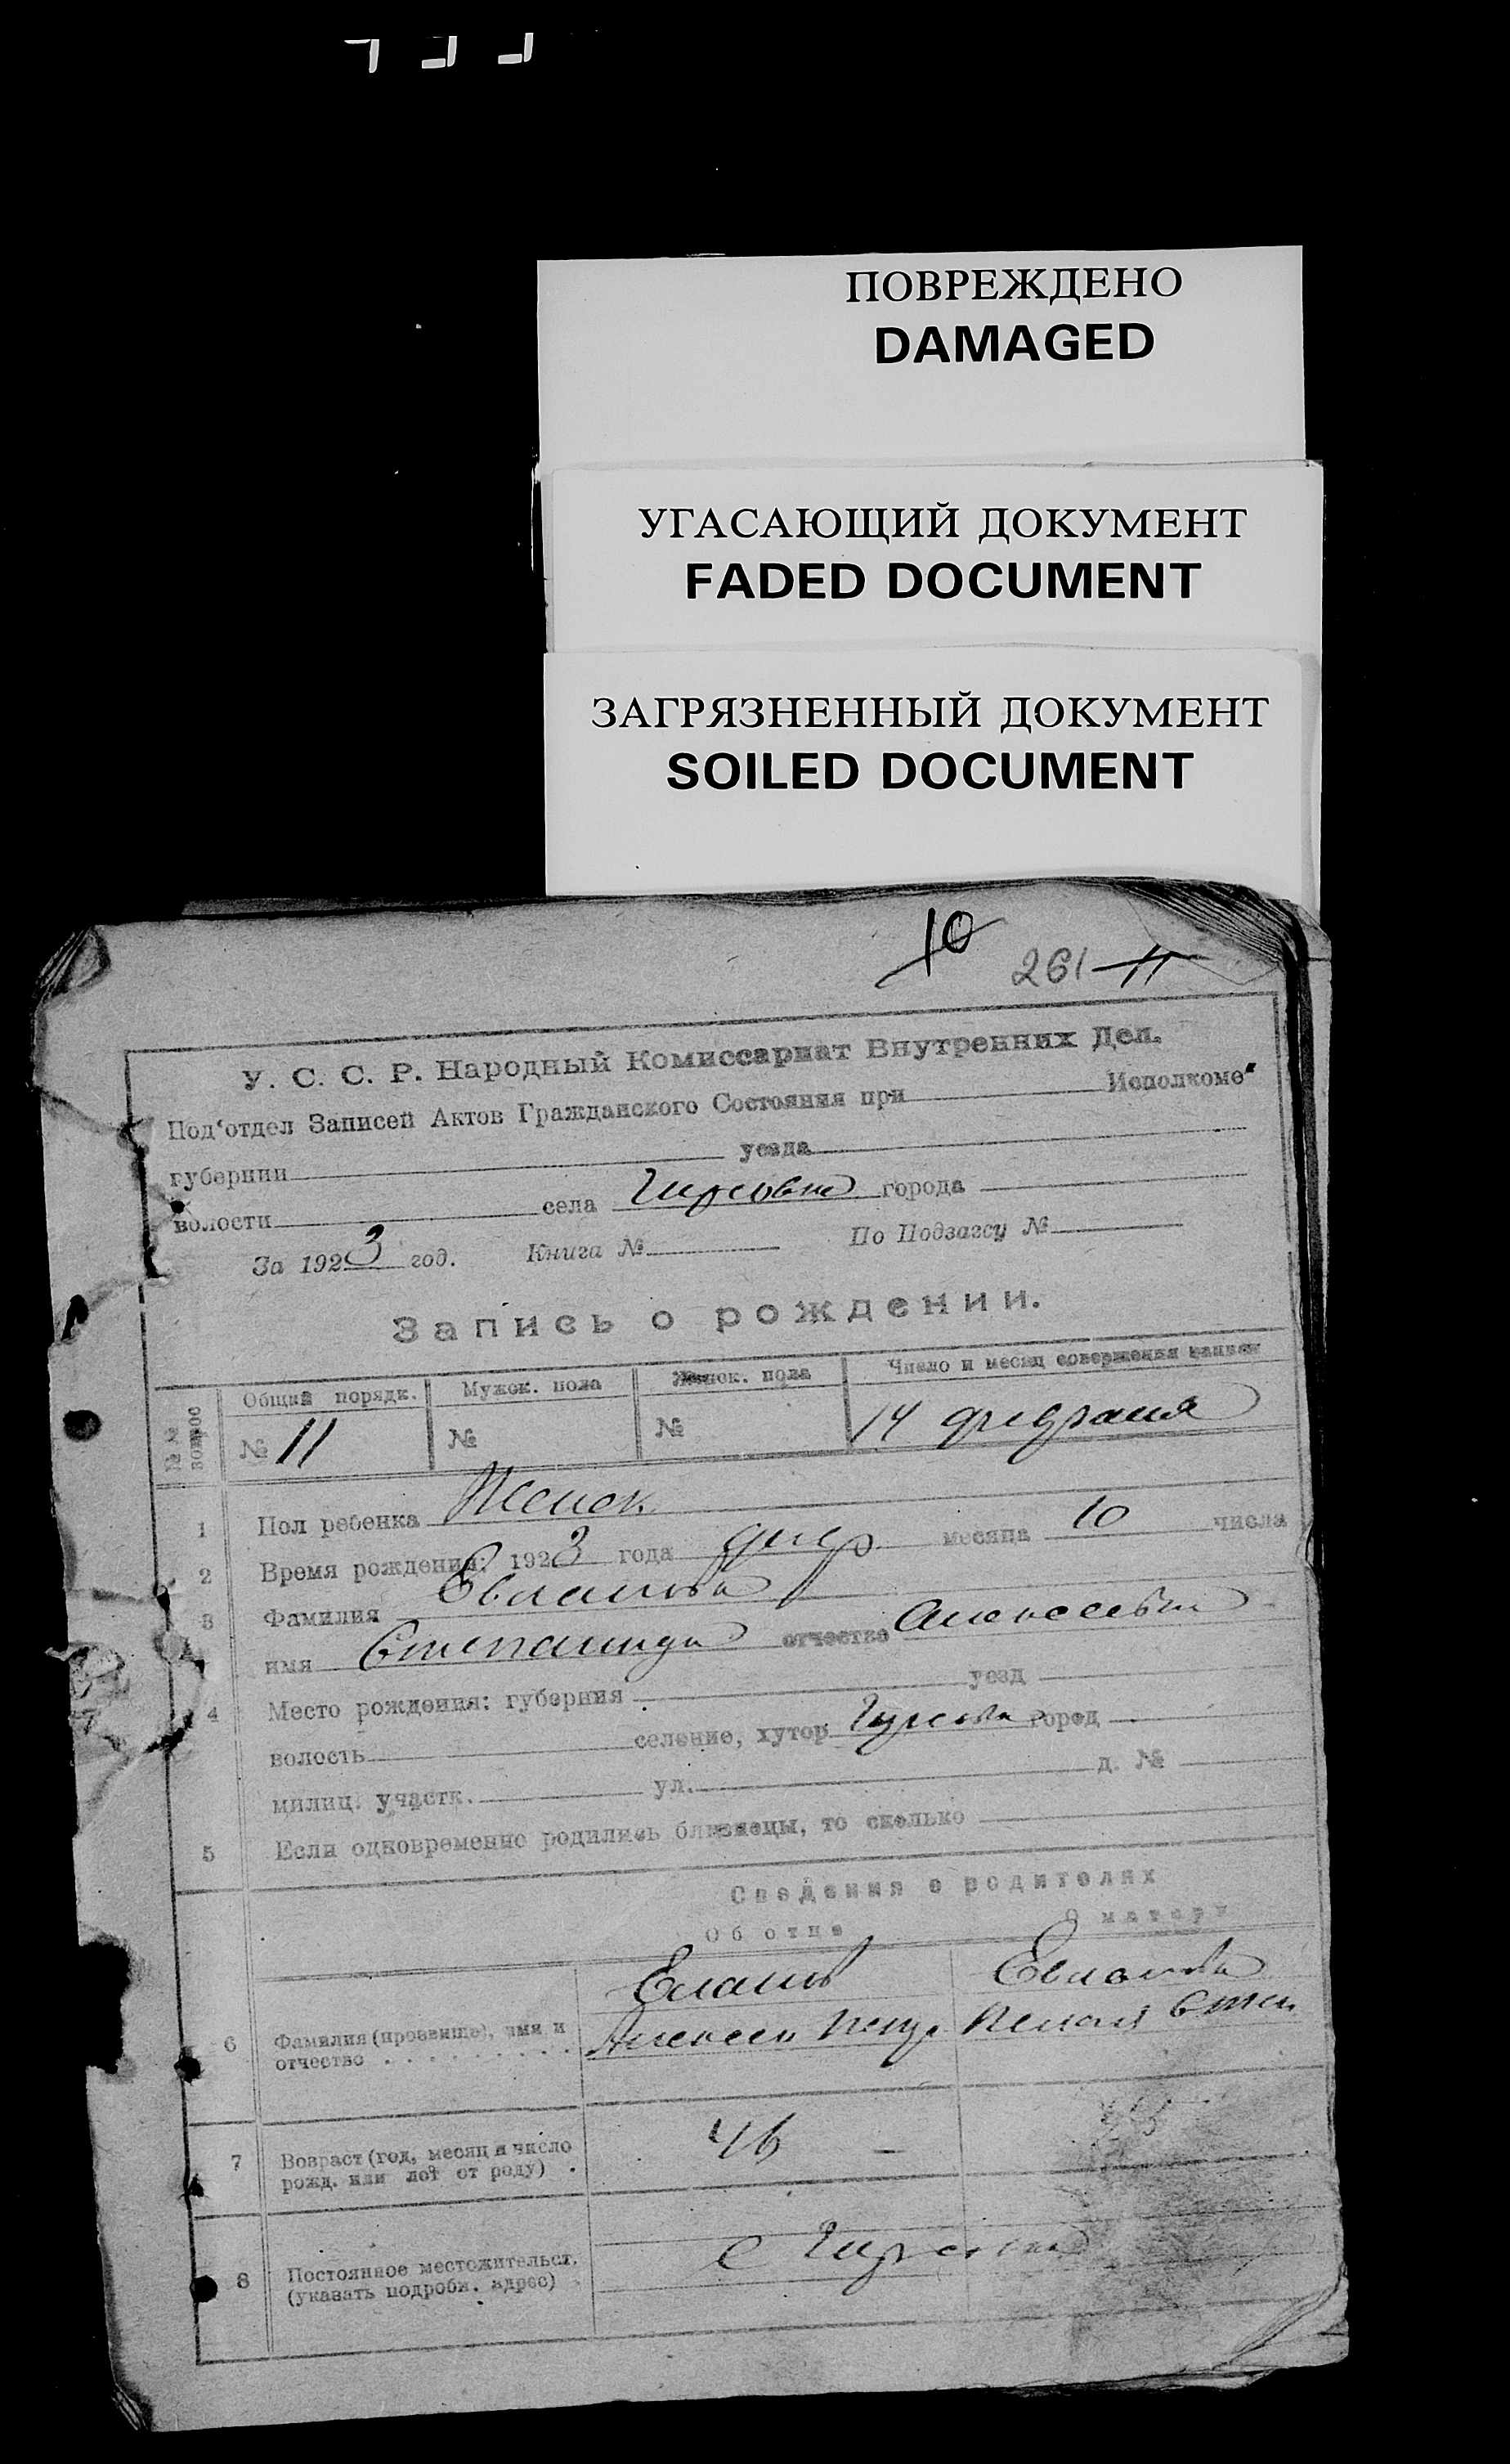 ПОВРЕЖДЕНО
DAMAGED
УГАСАЮЩИЙ ДОКУМЕНТ
FADED DOCUMENT
ЗАГРЯЗНЕННЫЙ ДОКУМЕНТ
SOILED DOCUMENT
10
261 11
У. С. С. Р. Народный Комиссариат Внутренних Дел.
Под'отдел Записей Актов Гражданского Состояния при Исполкоме
губернии уезда
волости села Гирсовка города
За 1923 год. Книга № По Подзагсу №
Запись о рождении.
№№ вопрос Общий порядк. Мужск. пола Женск. пола Число и месяц совершения записи
№ 11 № № 14 февраля
1 Пол ребенка Женск.
2 Время рождения: 1923 года февр. месяца 10 числа
3 Фамилия Евланова
имя Степанида отчество Алексеевна
4 Место рождения: губерния уезд
волость селение, хутор Гирсовка город
милиц. участк. ул. д. №
5 Если одновременно родились близнецы, то сколько
Сведения о родителях
Об отце О матери
Евланов Евланова
6 Фамилия (прозвище), имя и отчество Алексей Петр. Степ.
7 Возраст (год, месяц и число рожд. или лет от роду) 46
8 Постоянное местожительст. (указать подробн. адрес) с Гирсовка